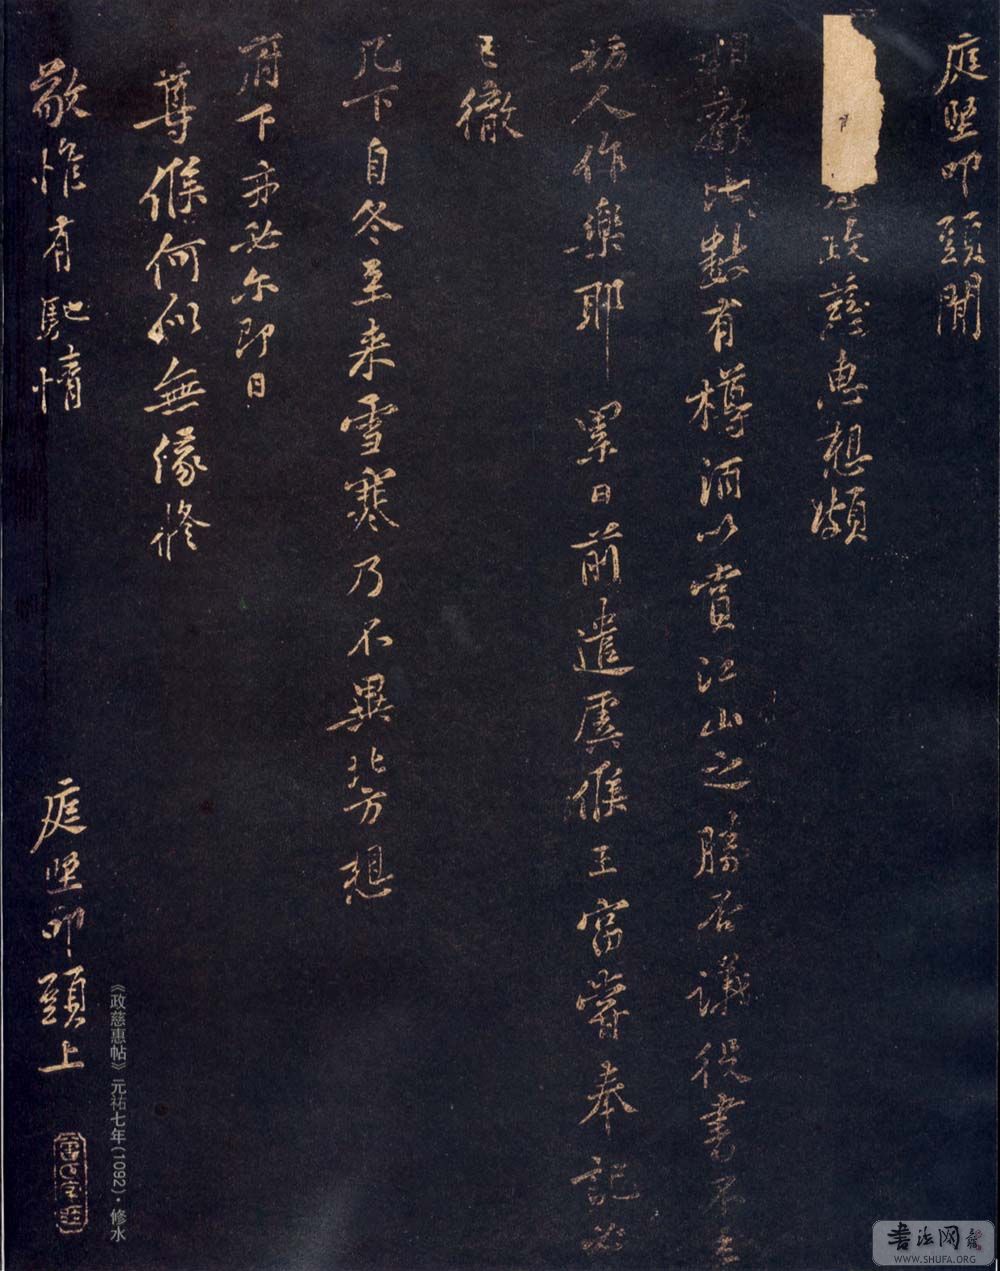 庭堅叩頭聞
政慈惠想頗
數有樽酒以賞江山之勝否議役書不
妨人作樂耶累日前遣虞候王富齎奉記必
已徹
几下自冬至来雪寒乃不異北方想
府下亦必尔即日
尊候何似無緣修
敬惟有馳情
庭堅叩頭上
《政慈惠帖》元祐七年(1092)·修水
書法网
WWW.SHUFA.ORG